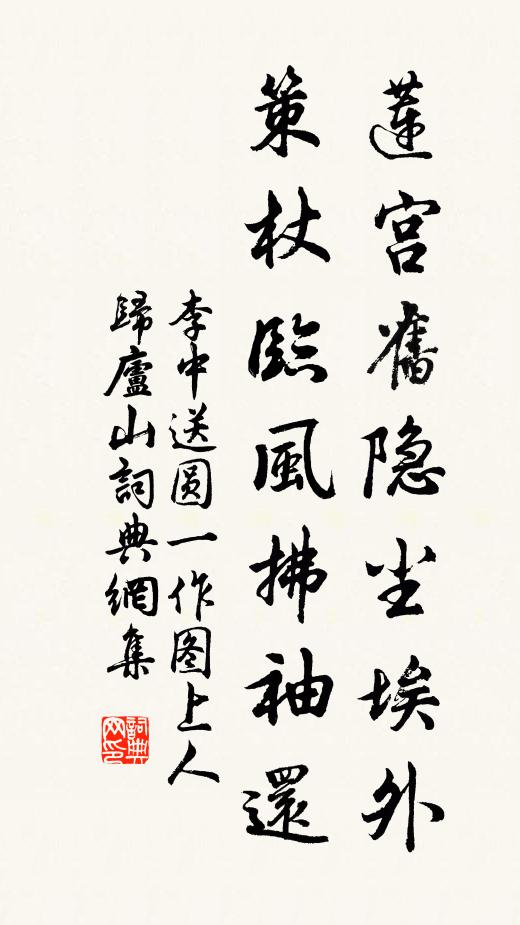 蓮宫舊隐尘埃外
策杖臨風拂袖還
李中送圓一作图上人
歸廬山詞典網集
詞典网印